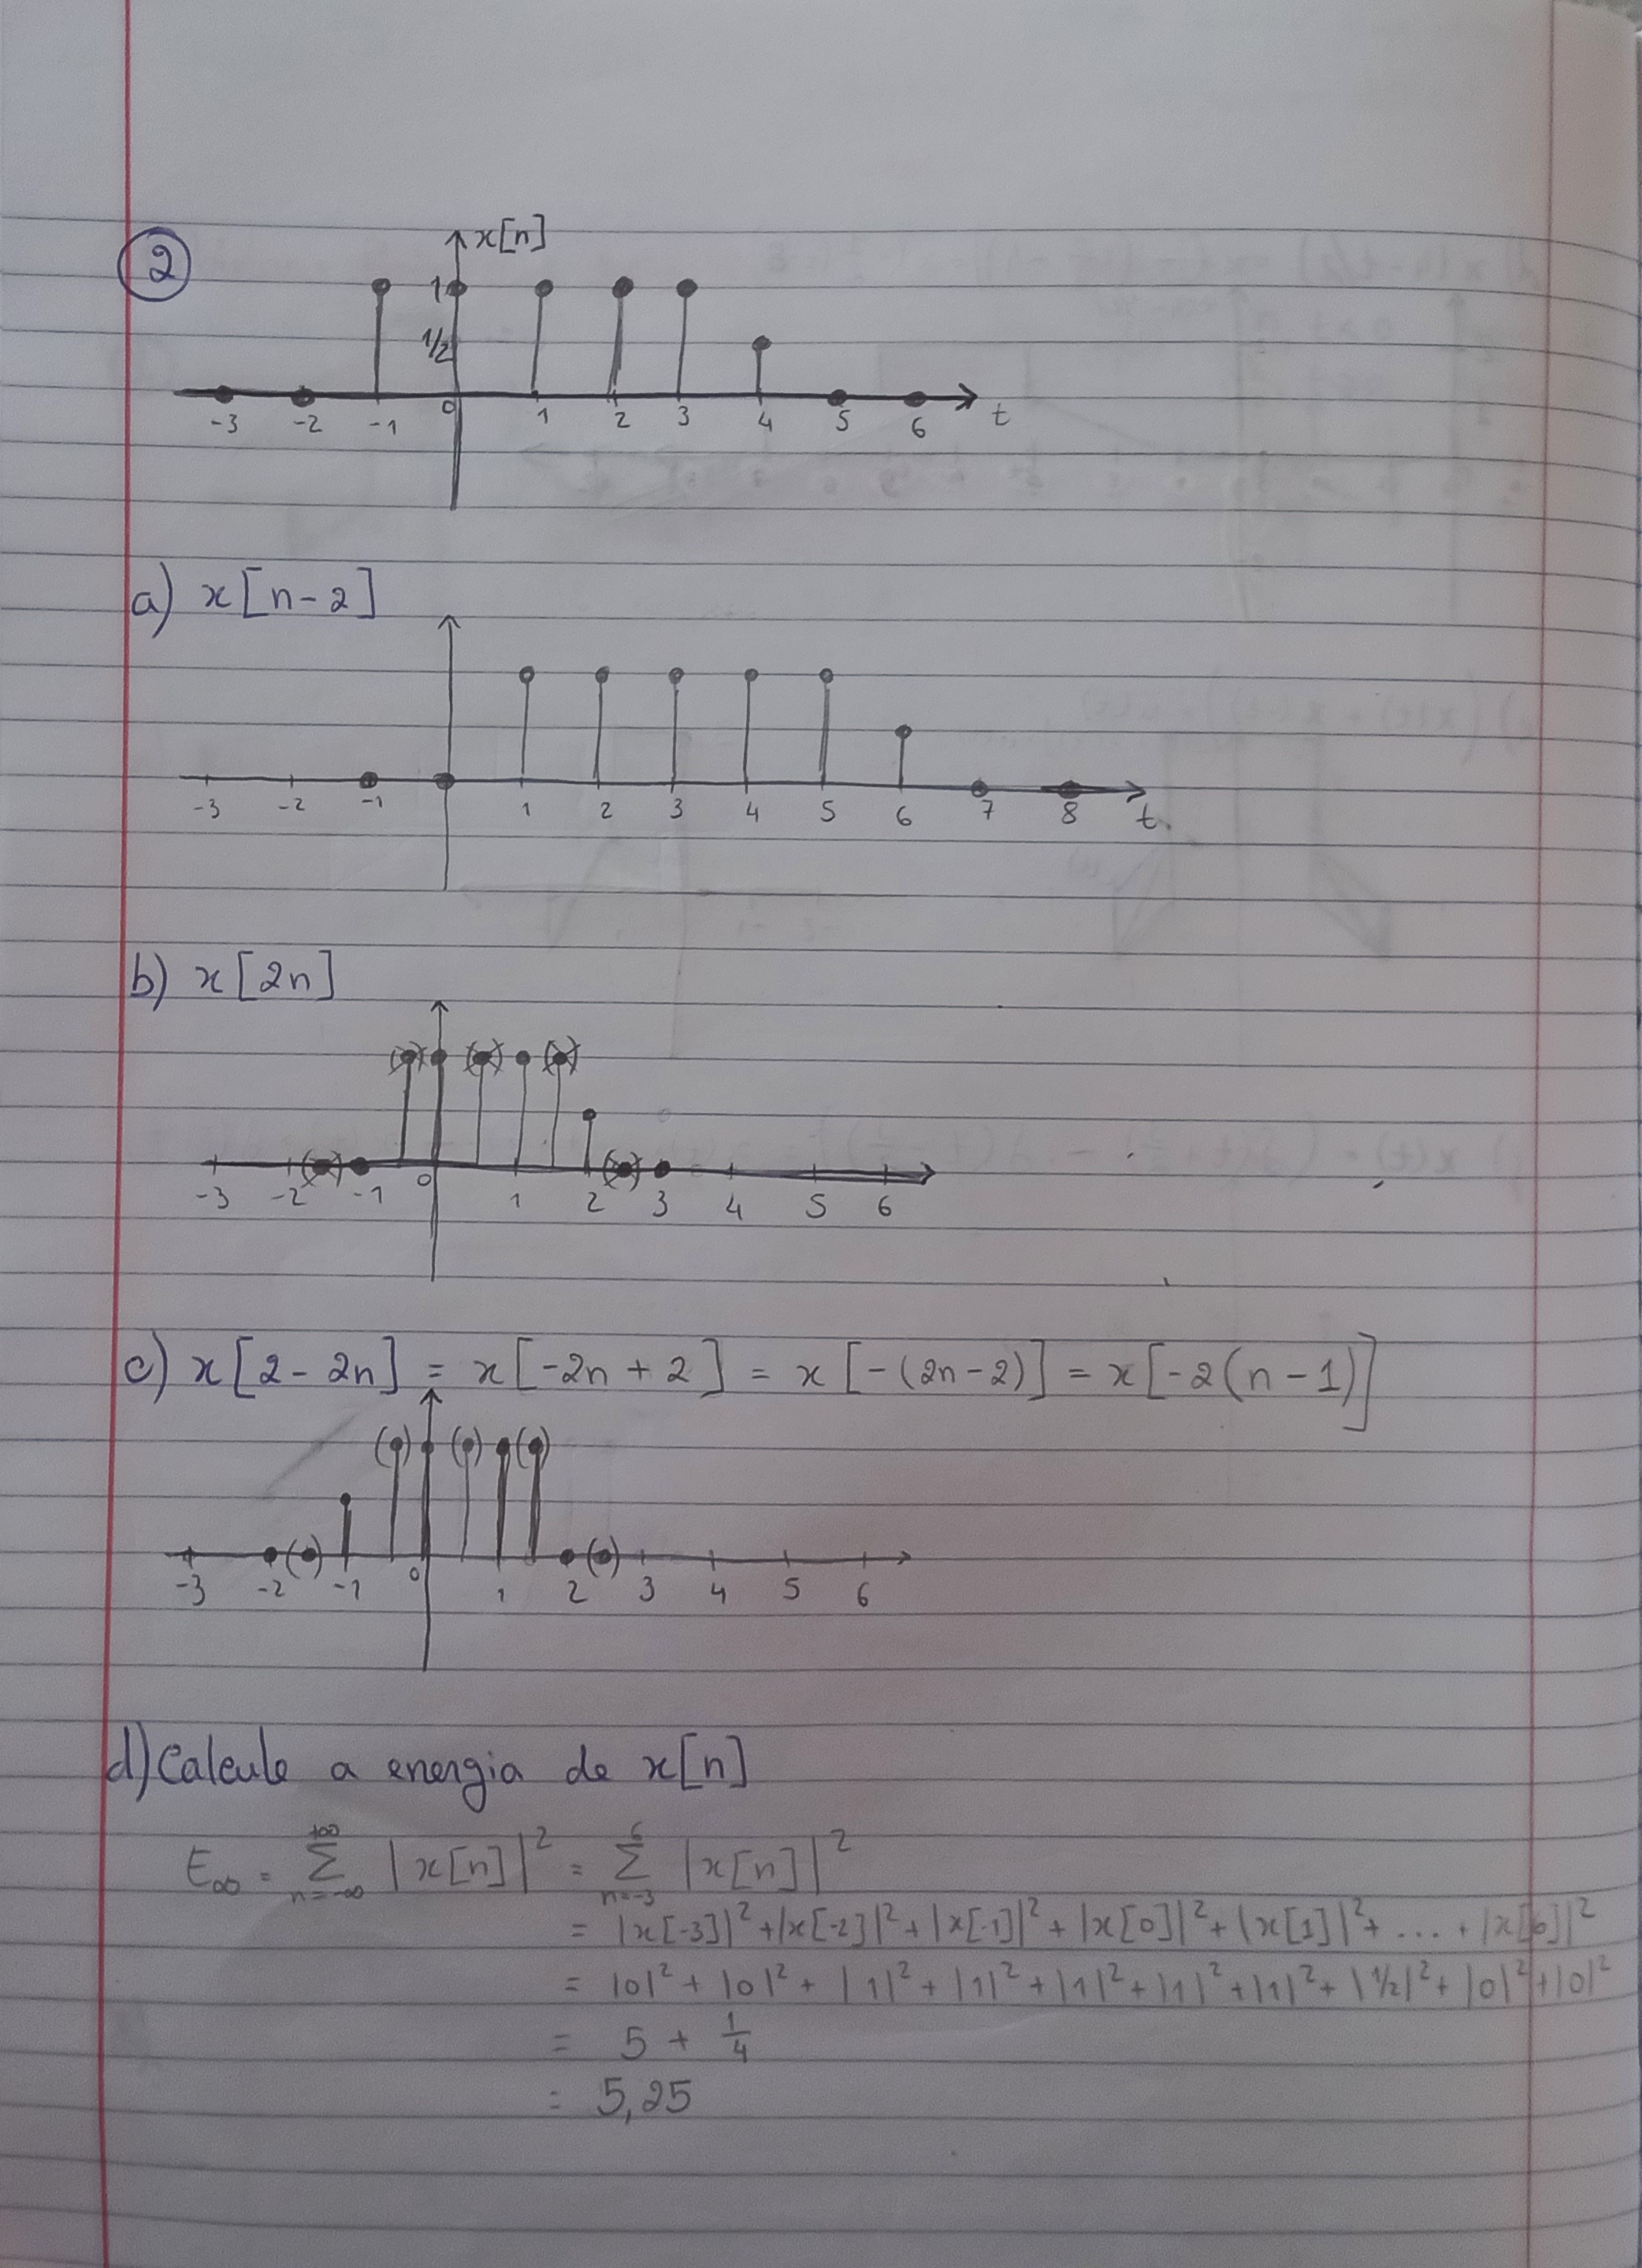 2
x[n]
1
1/2
-3 -2 -1 0 1 2 3 4 5 6 t
a) x[n-2]
-3 -2 -1 1 2 3 4 5 6 7 8 t
b) x[2n]
-3 -2 -1 0 1 2 3 4 5 6
c) x[2-2n] = x[-2n+2] = x[-(2n-2)] = x[-2(n-1)]
-3 -2 -1 0 1 2 3 4 5 6
d) Calcule a energia de x[n]
E∞ = +∞ Σ n=-∞ |x[n]|² = 6 Σ n=-3 |x[n]|²
= |x[-3]|² + |x[-2]|² + |x[-1]|² + |x[0]|² + |x[1]|² + ... + |x[6]|²
= |0|² + |0|² + |1|² + |1|² + |1|² + |1|² + |1|² + |1/2|² + |0|² + |0|²
= 5 + 1/4
= 5,25